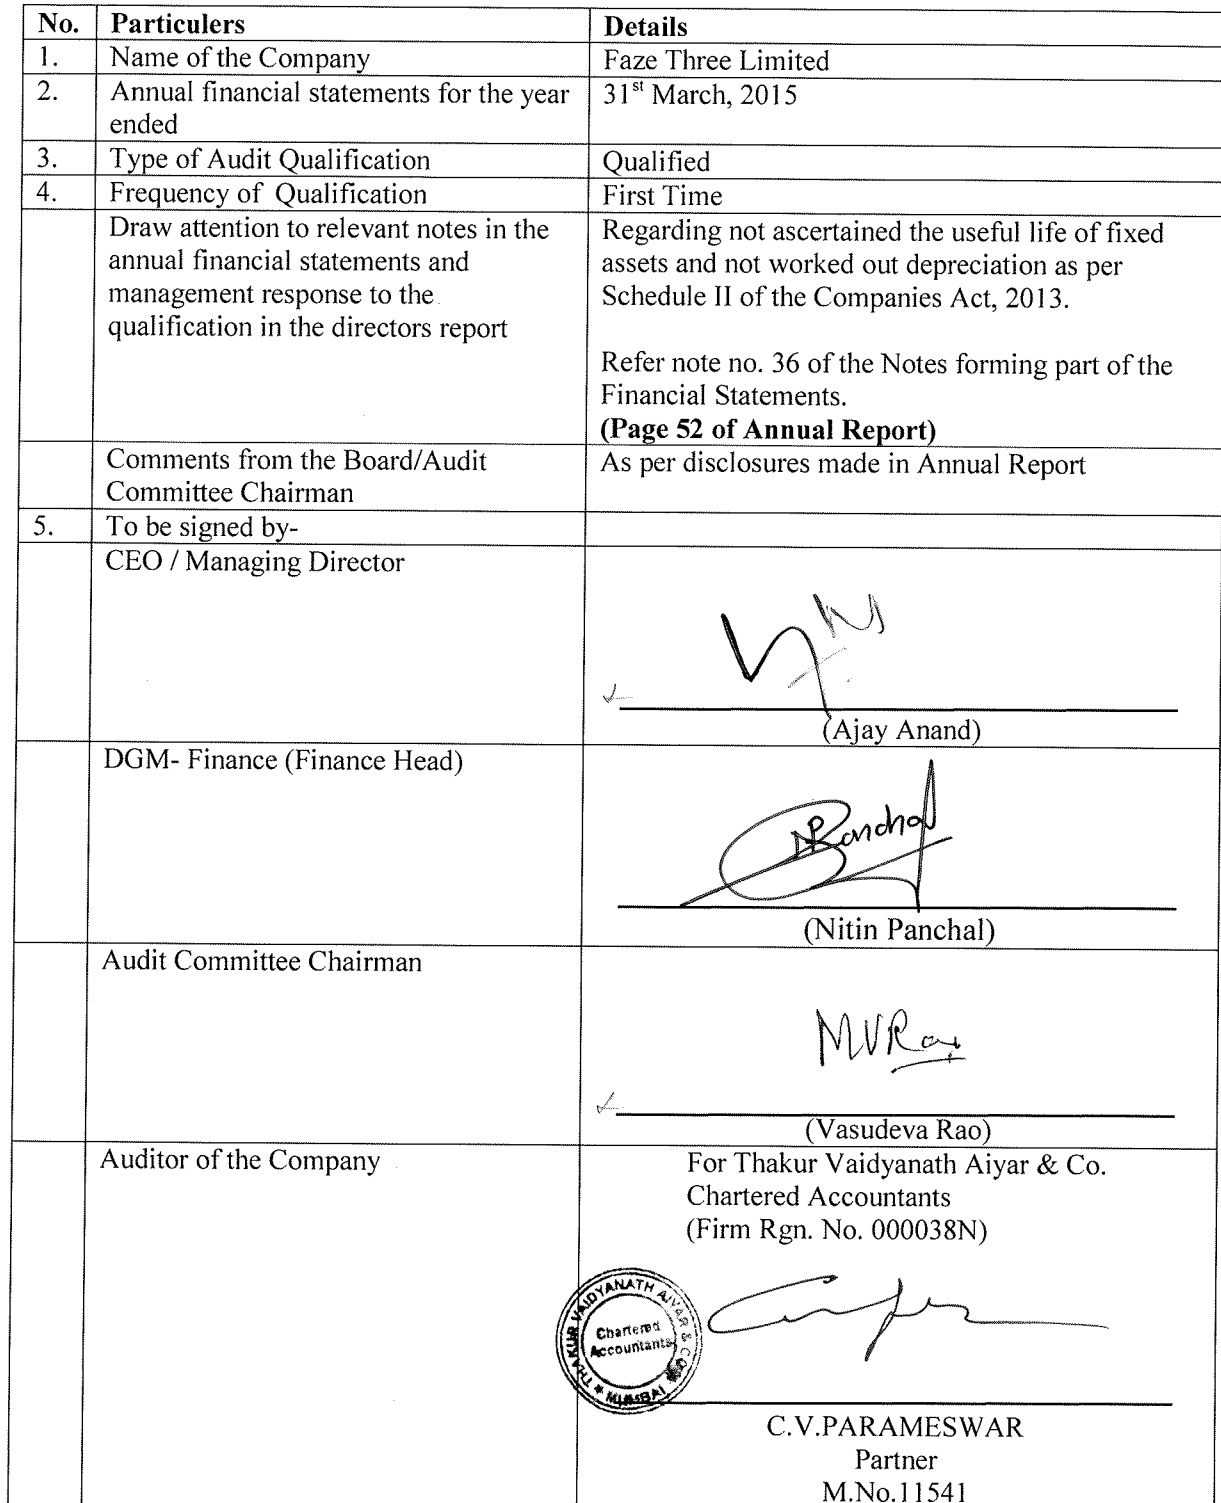 No. Particulers Details
1. Name of the Company Faze Three Limited
2. Annual financial statements for the year 31st March, 2015
ended
3. Type of Audit Qualification Qualified
4. Frequency of Qualification First Time
Draw attention to relevant notes in the
annual financial statements and
management response to the
qualification in the directors report
Regarding not ascertained the useful life of fixed
assets and not worked out depreciation as per
Schedule II of the Companies Act, 2013.
Refer note no. 36 of the Notes forming part of the
Financial Statements.
(Page 52 of Annual Report)
Comments from the Board/Audit
Committee Chairman
As per disclosures made in Annual Report
5. To be signed by-
CEO / Managing Director
(Ajay Anand)
DGM- Finance (Finance Head)
NPanchal
(Nitin Panchal)
Audit Committee Chairman
MVRao
(Vasudeva Rao)
Auditor of the Company
For Thakur Vaidyanath Aiyar & Co.
Chartered Accountants
(Firm Rgn. No. 000038N)
THAKUR VAIDYANATH AIYAR & CO.
Chartered
Accountants
* MUMBAI *
C.V.PARAMESWAR
Partner
M.No.11541